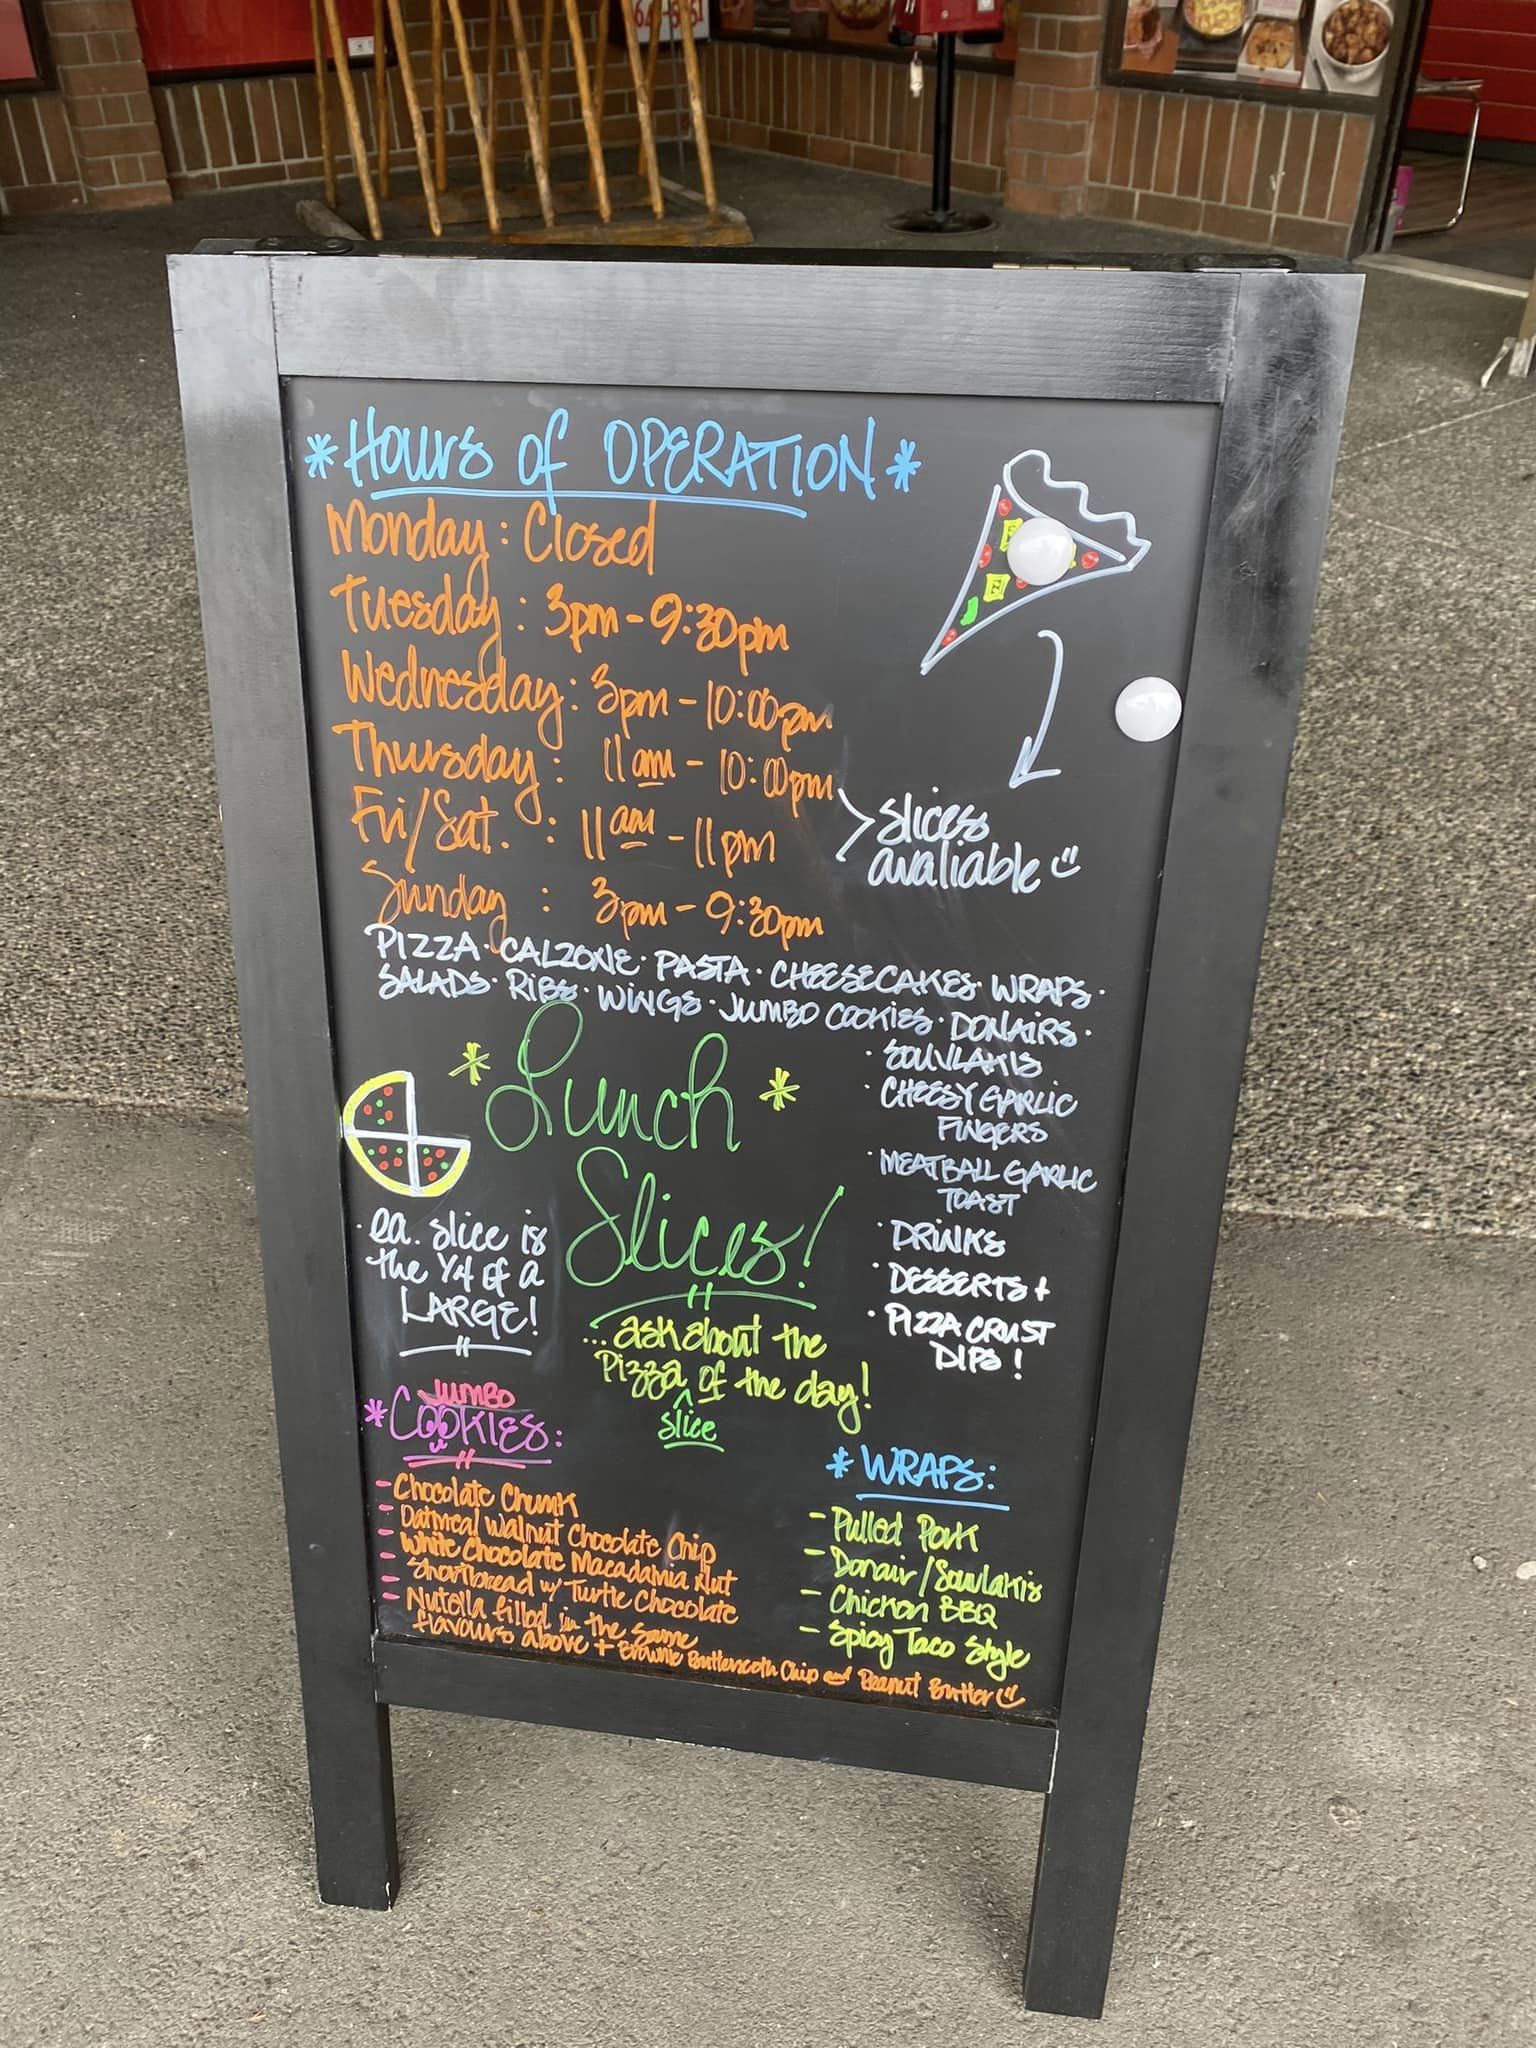 *Hours of OPERATION*
Monday: Closed
Tuesday: 3pm-9:30pm
Wednesday: 3pm-10:00pm
Thursday: 11am-10:00pm
Fri/Sat.: 11am-11pm
slices
avaliable
Sunday: 3pm-9:30pm
PIZZA·CALZONE·PASTA·CHEESECAKES·WRAPS·
SALADS·RIBS·WINGS·JUMBO COOKIES·DONAIRS·
·SOUVLAKIS
·CHEESY GARLIC
FINGERS
·MEATBALL GARLIC
TOAST
·DRINKS
·DESSERTS +
·PIZZA CRUST
DIPS!
*Lunch*
Slices!
·ea. slice is
the 1/4 of a
LARGE!
...ask about the
Pizza of the day!
slice
JUMBO
*COOKIES:
-Chocolate Chunk
-Oatmeal Walnut Chocolate Chip
-White Chocolate Macadamia Nut
-Shortbread w/ Turtle Chocolate
-Nutella filled in the same
flavours above + Brownie Butterscotch Chip and Peanut Butter
*WRAPS:
-Pulled Pork
-Donair/Souvlakis
-Chicken BBQ
-Spicy Taco Style